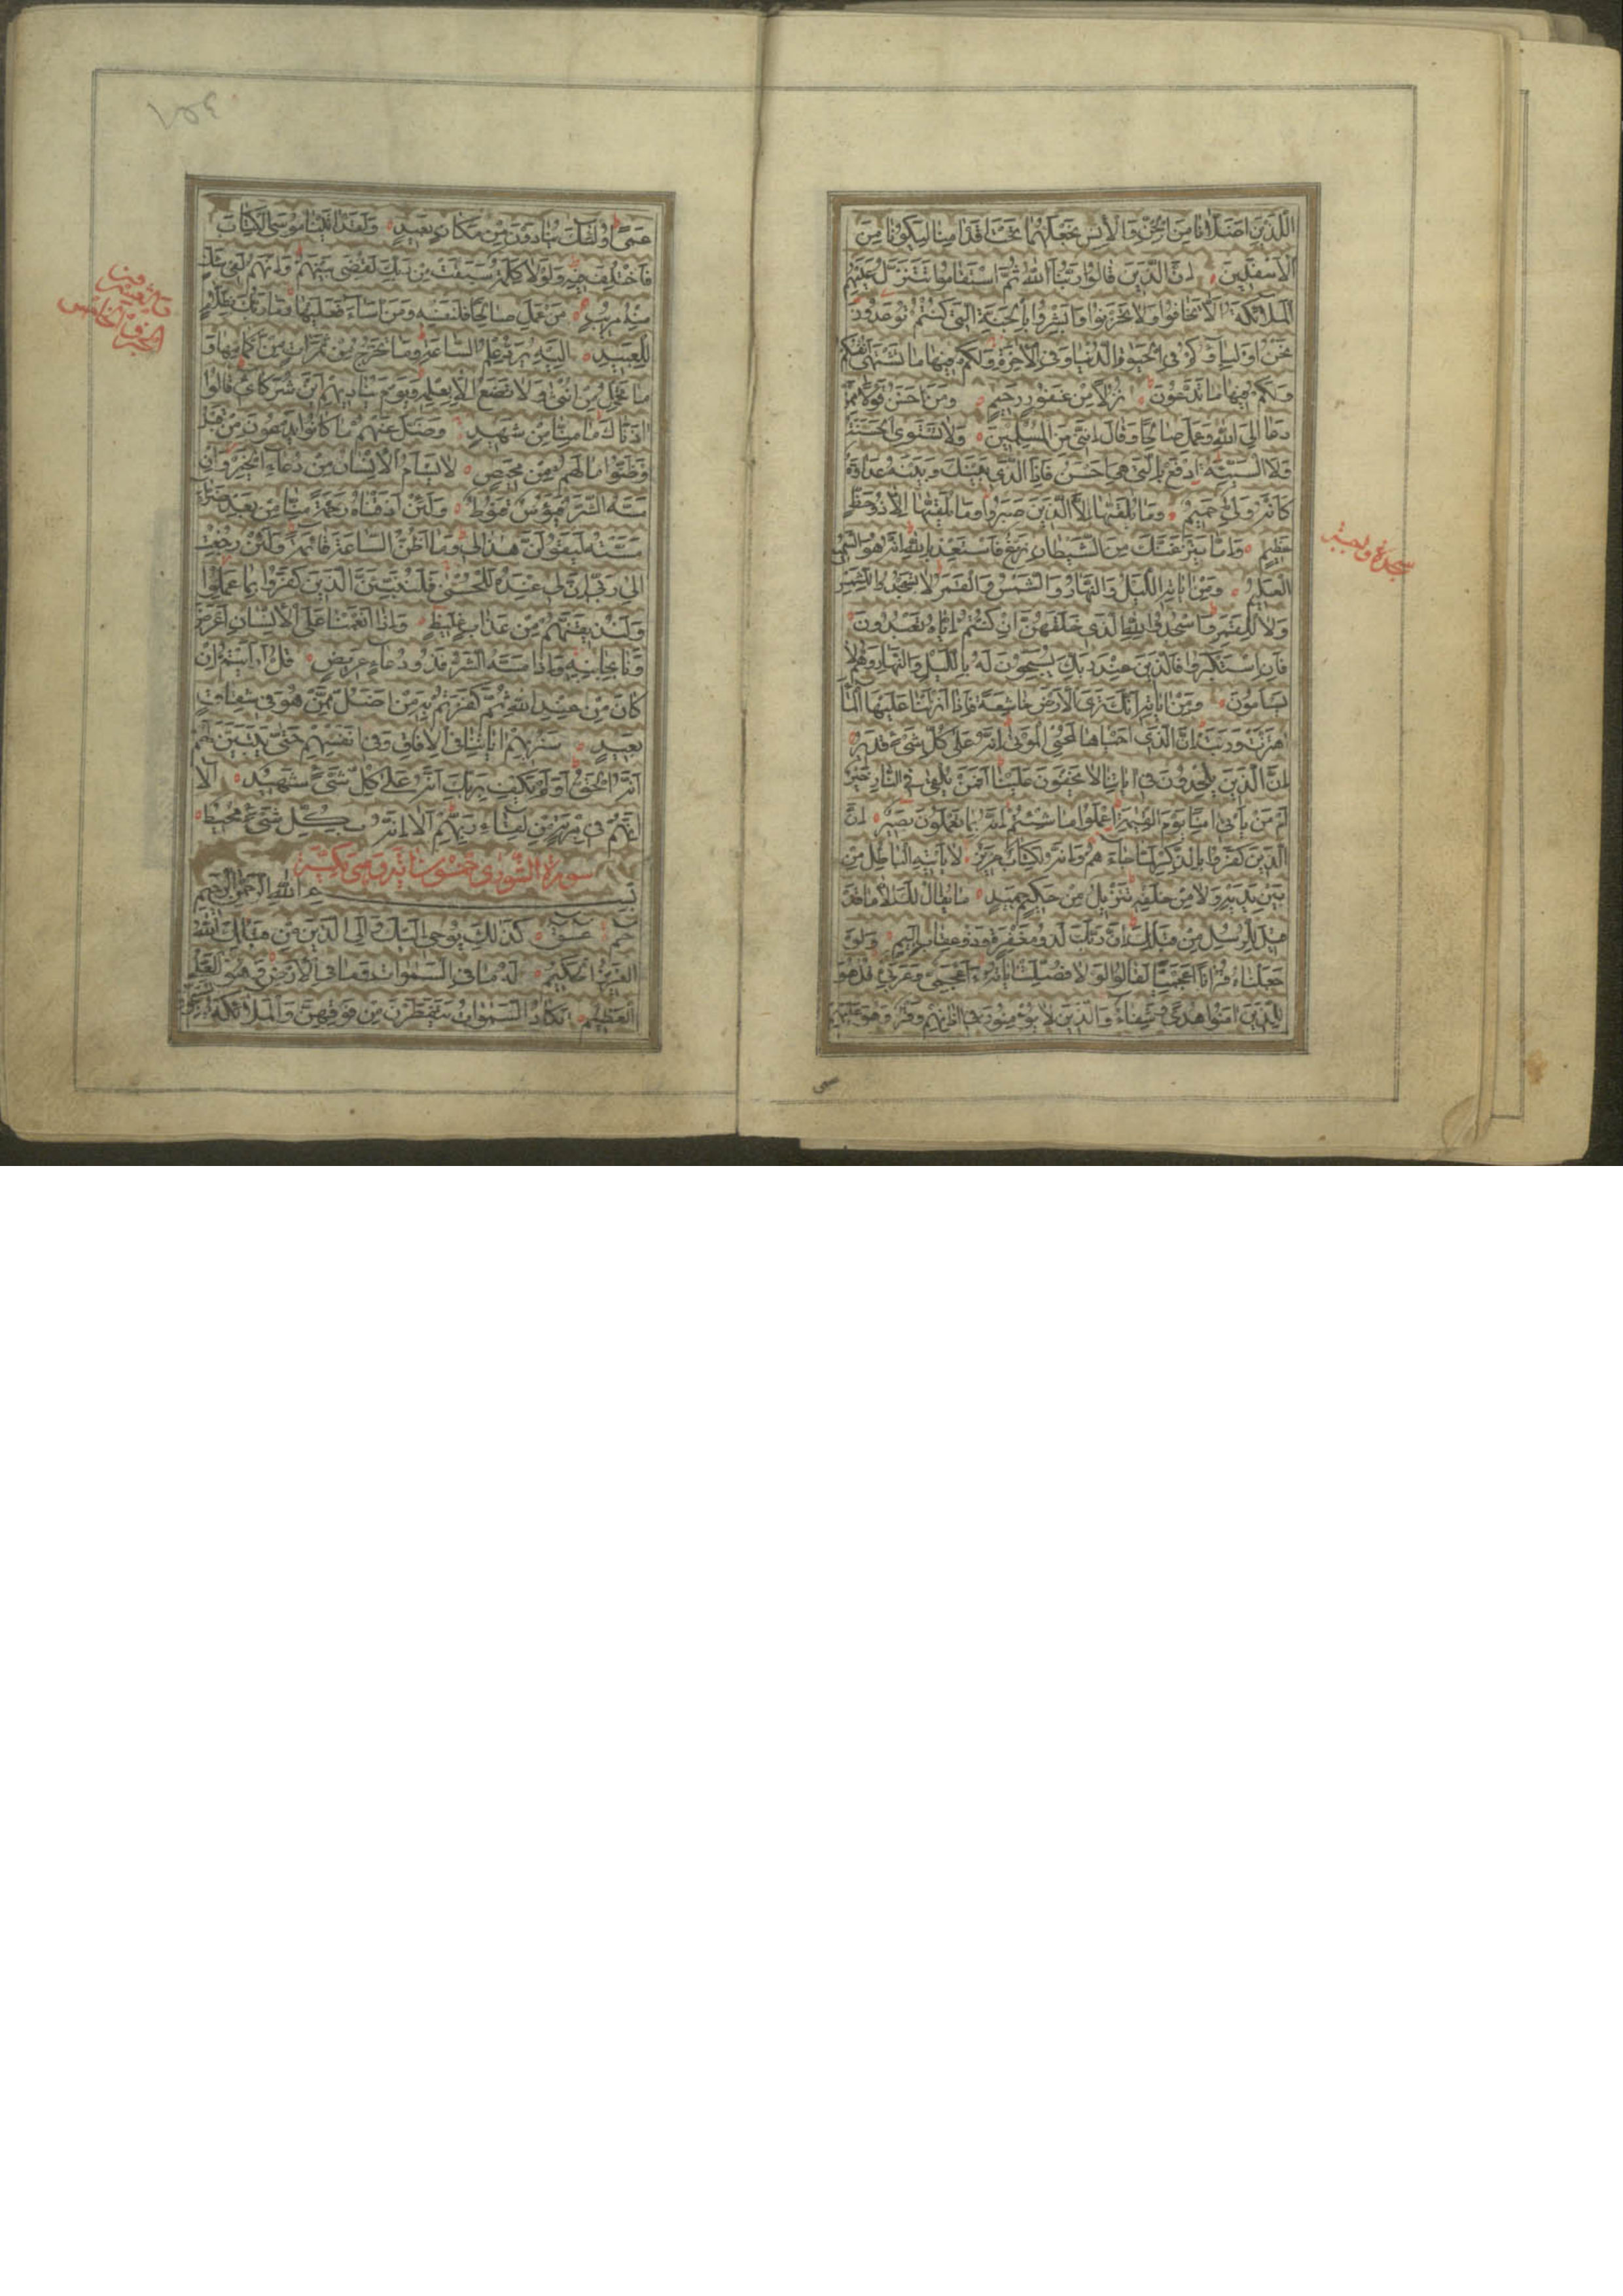 اللذين اضلانا من الجن والانس نجعلهما تحت اقدامنا ليكونا من
الاسفلين ان الذين قالوا ربنا الله ثم استقاموا تتنزل عليهم
الملائكة الا تخافوا ولا تحزنوا وابشروا بالجنة التي كنتم توعدون
نحن اولياؤكم في الحيوة الدنيا وفي الاخرة ولكم فيها ما تشتهي انفسكم
ولكم فيها ما تدعون نزلا من غفور رحيم ومن احسن قولا ممن
دعا الى الله وعمل صالحا وقال انني من المسلمين ولا تستوي الحسنة
ولا السيئة ادفع بالتي هي احسن فاذا الذي بينك وبينه عداوة
كانه ولي حميم وما يلقيها الا الذين صبروا وما يلقيها الا ذو حظ
عظيم واما ينزغنك من الشيطان نزغ فاستعذ بالله انه هو السميع
العليم ومن اياته الليل والنهار والشمس والقمر لا تسجدوا للشمس
ولا للقمر واسجدوا لله الذي خلقهن ان كنتم اياه تعبدون
فان استكبروا فالذين عند ربك يسبحون له بالليل والنهار وهم لا
يسامون ومن اياته انك ترى الارض خاشعة فاذا انزلنا عليها الماء
اهتزت وربت ان الذي احياها لمحيي الموتى انه على كل شيء قدير
ان الذين يلحدون في اياتنا لا يخفون علينا افمن يلقى في النار خير
ام من ياتي امنا يوم القيمة اعملوا ما شئتم انه بما تعملون بصير ان
الذين كفروا بالذكر لما جاءهم وانه لكتاب عزيز لا ياتيه الباطل من
بين يديه ولا من خلفه تنزيل من حكيم حميد ما يقال لك الا ما قد
قيل للرسل من قبلك ان ربك لذو مغفرة وذو عقاب اليم ولو
جعلناه قرانا اعجميا لقالوا لولا فصلت اياته ءاعجمي وعربي قل هو
للذين امنوا هدى وشفاء والذين لا يؤمنون في اذانهم وقر وهو عليهم
سجدة واجبة
عمى
١٥٤
عمى اولئك ينادون من مكان بعيد ولقد اتينا موسى الكتاب
فاختلف فيه ولولا كلمة سبقت من ربك لقضي بينهم وانهم لفي شك
منه مريب من عمل صالحا فلنفسه ومن اساء فعليها وما ربك بظلام
للعبيد اليه يرد علم الساعة وما تخرج من ثمرات من اكمامها و
ما تحمل من انثى ولا تضع الا بعلمه ويوم يناديهم اين شركائي قالوا
اذناك ما منا من شهيد وضل عنهم ما كانوا يدعون من قبل
وظنوا ما لهم من محيص لا يسام الانسان من دعاء الخير وان
مسه الشر فيؤس قنوط ولئن اذقناه رحمة منا من بعد ضراء
مسته ليقولن هذا لي وما اظن الساعة قائمة ولئن رجعت
الى ربي ان لي عنده للحسنى فلننبئن الذين كفروا بما عملوا
ولنذيقنهم من عذاب غليظ واذا انعمنا على الانسان اعرض
ونا بجانبه واذا مسه الشر فذو دعاء عريض قل ارايتم ان
كان من عند الله ثم كفرتم به من اضل ممن هو في شقاق
بعيد سنريهم اياتنا في الافاق وفي انفسهم حتى يتبين لهم
انه الحق اولم يكف بربك انه على كل شيء شهيد الا
انهم في مرية من لقاء ربهم الا انه بكل شيء محيط
سورة الشورى خمسون اية وهي مكية
بسم الله الرحمن الرحيم
حم عسق كذلك يوحي اليك والى الذين من قبلك الله
العزيز الحكيم له ما في السموات وما في الارض وهو العلي
العظيم تكاد السموات يتفطرن من فوقهن والملائكة يسبحون
والعشرون
الجزء الخامس